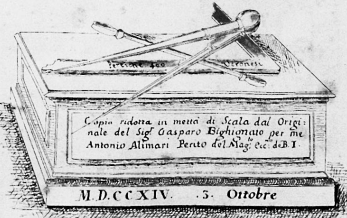 Pertiche 400 Veronesi
Copia ridotta in metta di Scala dal Origi-
nale del Sig.r Gasparo Bighignato per me
Antonio Alimari Perito del Mag.to Ecc.mo di B. I.
M.D.CCXIV. 3. Ottobre